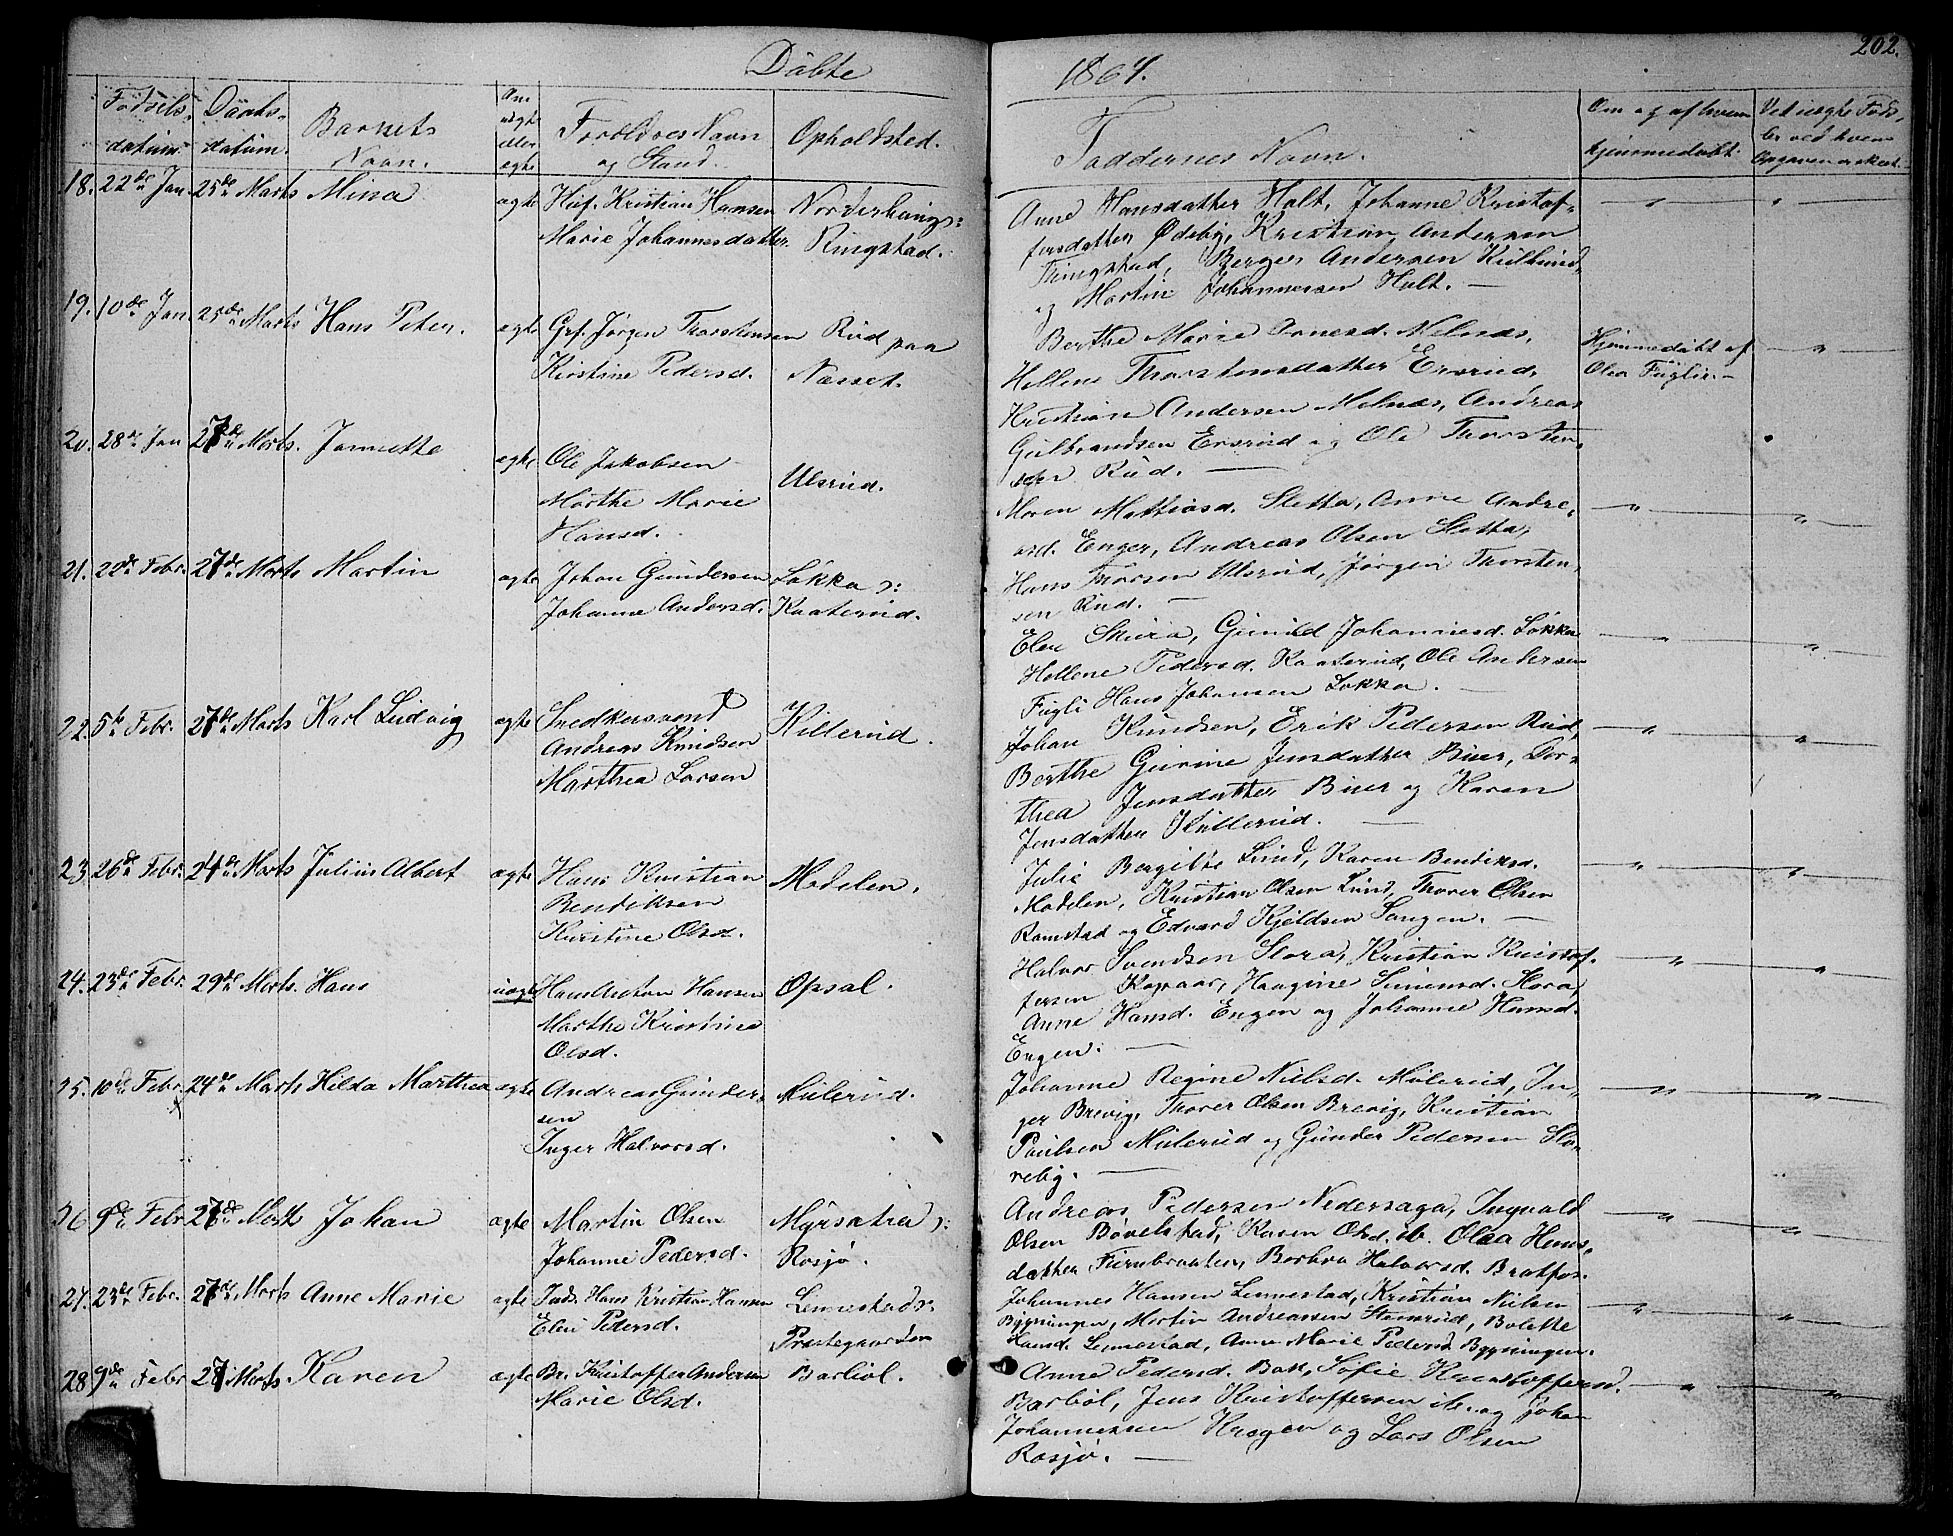 Döbte
1864.
202.
Födsels-
datum.
Daabs-
datum.
Barnets
Navn.
Om
uægte
eller
ægte
Forældres Navn
og Stand.
Opholdsted.
Faddernes Navn.
Om og af hvem
hjemmedøbt.
Ved uægte Føds-
ler ved hvem
Opgaven er skeet.
18. 22de Jan. 25de Marts Mina ægte Huf. Kristian Hansen Norderhaug):
Marie Johannesdatter Ringstad.
Anne Hansdatter Holt, Johanne Kristof-
fersdatter Ødeby, Kristian Andersen
Ringstad, Berger Andersen
og Martin Johannessen Holt.
19. 10de Jan. 25de Marts Hans Peter. ægte Grf. Jørgen Thorstensen Rud paa
Kirstine Pedersd. Næsset.
Berthe Marie Arnesd. Melnæs,
Hellene Thorstensdatter Ersrud,
Kristian Andersen Melnæs, Andreas
Gulbrandsen Ersrud og Ole Thorsten-
sen Rud.
Hjemmedøbt af
Olea Fuglir.
20. 28de Jan 27de Marts. Jannette ægte Ole Jakobsen
Marthe Marie
Hansd.
Ulsrud.
Maren Mathiasd. Sletta, Anne Andre-
asd. Enger, Andreas Olsen Sletta,
Hans Thorsen Ulsrud, Jørgen Thorsten-
sen Rud.
21. 22de Febr. 27de Marts Martin ægte Johan Gundersen Løkka ):
Johanne Andersd. Kaaterud.
Elen Skura, Gunild Johannesd. Løkka
Hellene Pedersd. Kaaterud, Ole Andersen
Fugli Hans Johansen Løkka.
22. 5te Febr. 27de Marts Karl Ludvig ægte Snedkersvend
Andreas Knudsen
Marthea Larsen
Killerud.
Johan Knudsen, Erik Pedersen Rud,
Berthe Gurine Jensdatter Buer, Dor-
thea Jensdatter Buer og Karen
Jensdatter Killerud.
23. 26de Febr. 24de Marts Julius Albert ægte Hans Kristian
Bendiksen
Kirstine Olsd.
Modelen.
Julie Bergitte Lund, Karen Bendiksd.
Modelen, Kristian Olsen Lund, Thorer Olsen
Ramstad og Edvard Kjeldsen Sangen.
24. 23de Febr. 29de Marts. Hans uægte Hans Anton Hansen
Marthe Kristine
Olsd.
Opsal.
Halvor Svendsen Slora, Kristian Kristof-
fersen Kopaas, Haagine Simensd. Slora,
Anne Hansd. Engen og Johanne Hansd.
Engen.
25. 10de Febr. 24de Marts Hilda Marthea ægte Andreas Gunder-
sen
Inger Halvorsd.
Mulerud.
Johanne Regine Nielsd. Mulerud, In-
ger Brevig, Thorer Olsen Brevig, Kristian
Paulsen Mulerud og Gunder Pedersen Slo-
reby.
26 9de Febr 27de Marts Johan ægte Martin Olsen Myrsætra ):
Johanne Pedersd. Rosjø.
Andreas Pedersen Nedersaga, Ingvald
Olsen Bøvelstad, Karen Olsd. ib. Olea Hans-
datter Tiernbraaten, Barbra Halvorsd. Bratfos.
27. 23de Febr. 27de Marts Anne Marie ægte Inds. Hans Kristian Hansen Lennestad):
Elen Pedersd. Præstegaarden
Johannes Hansen Lennestad, Kristian Nielsen
Bygningen, Martin Andreassen Stenrud, Bolette
Hansd. Lennestad, Anne Marie Pedersd. Bygningen.
28 9de Febr 27de Marts Karen ægte Br. Kristoffer Andersen Barbøl.
Marie Olsd.
Anne Pedersd. Bak, Sofie Kristoffersd.
Barbøl, Jens Kristoffersen ib. og Johan
Johannessen Krogen og Lars Olsen
Rosjø.